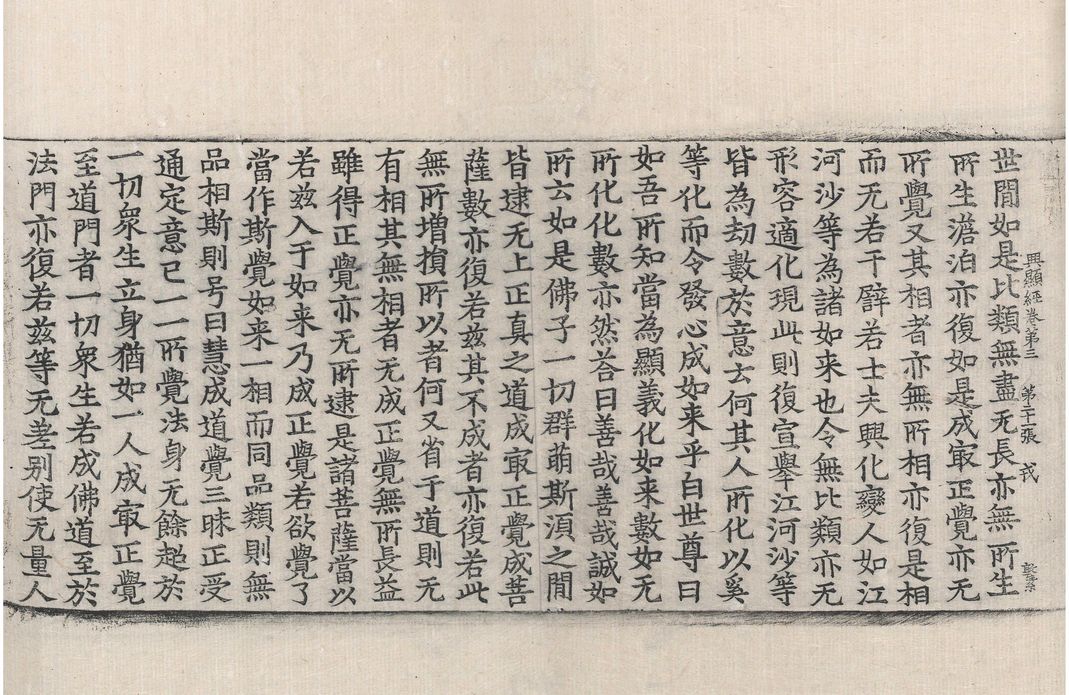 興顯經卷第三 第二十一張 戎
世間如是比類無盡无長亦無所生
所生澹泊亦復如是成㝡正覺亦无
所覺又其相者亦無所相亦復是相
而无若干辟若士夫興化變人如江
河沙等為諸如来也令無比類亦无
形容適化現此則復宣舉江河沙等
皆為劫數於意云何其人所化以奚
等化而令發心成如来乎白世尊曰
如吾所知當為顯義化如来數如无
所化化數亦然荅曰善哉善哉誠如
所云如是佛子一切群萌斯湏之間
皆逮无上正真之道成㝡正覺成菩
薩數亦復若兹其不成者亦復若此
無所增損所以者何又省于道則无
有相其無相者无成正覺無所長益
雖得正覺亦无所逮是諸菩薩當以
若兹入于如来乃成正覺若欲覺了
當作斯覺如来一相而同品類則無
品相斯則号曰慧成道覺三昧正受
通定意已一一所覺法身无餘超於
一切衆生立身猶如一人成㝡正覺
至道門者一切衆生若成佛道至於
法門亦復若兹等无差别使无量人